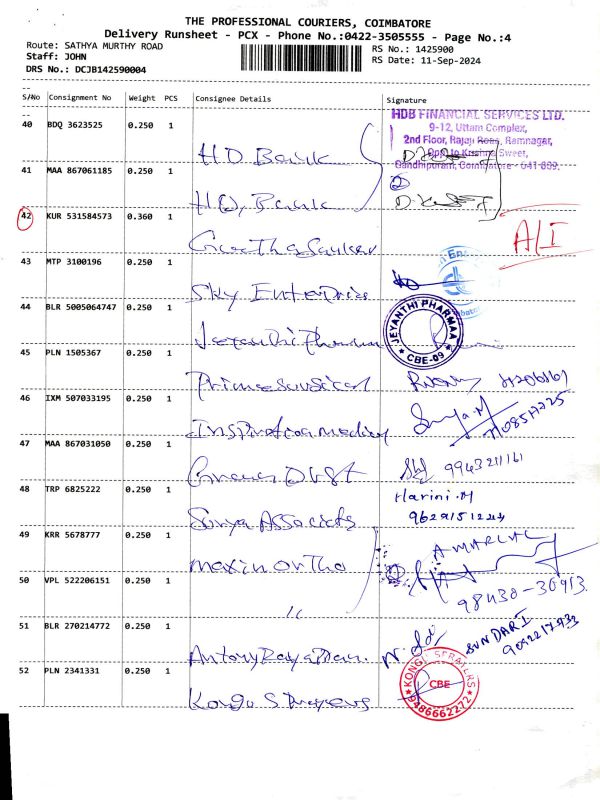 THE PROFESSIONAL COURIERS, COIMBATORE
Delivery Runsheet - PCX - Phone No.:0422-3505555 - Page No.:4
Route: SATHYA MURTHY ROAD
RS No.: 1425900
Staff: JOHN
RS Date: 11-Sep-2024
DRS No.: DCJB142590004
S/No Consignment No Weight PCS Consignee Details Signature
HDB FINANCIAL SERVICES LTD.
40 BDQ 3623525 0.250 1
9-12, Uttam Complex,
2nd Floor, Rajaji Road, Ramnagar,
HD Bank
Opp to Krishna Sweet,
Gandhipuram, Coimbatore - 641 009.
41 MAA 867061185 0.250 1
HD, Bank
42 KUR 531584573 0.360 1
A/I
43 MTP 3100196 0.250 1
Sky Enterprise
44 BLR 5005064747 0.250 1
JEYANTHI PHARMAA
CBE-09
Jeyanthi Pharmaa
45 PLN 1505367 0.250 1
Prime Surgical
46 IXM 507033195 0.250 1
Surya.M
Inspiration medical
47 MAA 867031050 0.250 1
9943211161
48 TRP 6825222 0.250 1
Harini.M
Surya Associats
49 KRR 5678777 0.250 1
AMARLAL
maxin ortho
50 VPL 522206151 0.250 1
98430-30913
"
51 BLR 270214772 0.250 1
SUNDARI
Antony
52 PLN 2341331 0.250 1
CBE
9486662272
Kongu Sprayers